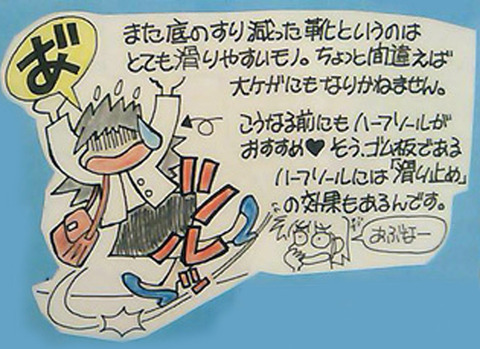 あ゛
また底のすり減った靴というのは
とても滑りやすいモノ。ちょっと間違えば
大ケガにもなりかねません。
こうなる前にもハーフソールが
おすすめ♥そう、ゴム板である
ハーフソールには「滑り止め」
の効果もあるんです。
ツルッ
あぶなー